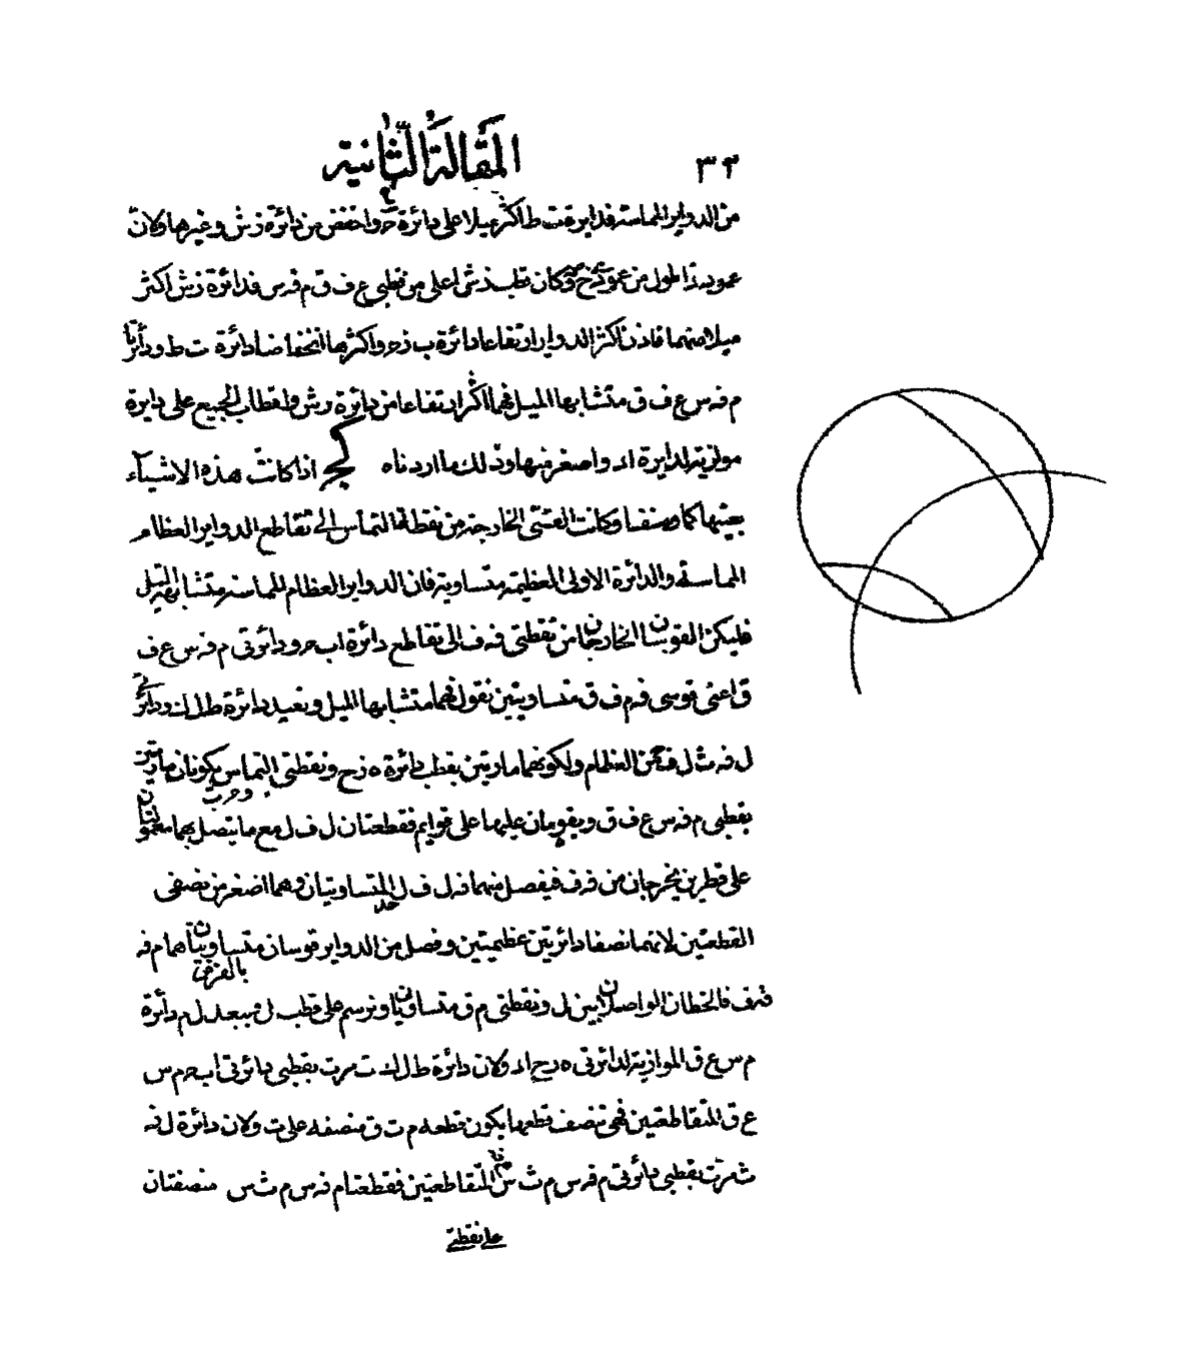 المقالة الثانية
٣٢
من الدواير المماسة فدايرة ت ط اكثر ميلا على دائرة ح واخفض من دائرة ز ش وغيرها ولان
عمود اطول من عمود وكان قطب ذ ش اعلى من قطبي ع ف ق م فه س فدائرة ز ش اكثر
ميلا منهما فاذن اكثر الدواير ارتفاعا دائرة ب ذ ح واكثرها انخفاضا دائرة ت ط ودائرتا
م فه س ع ف ق متشابها الميل فهما اكثر ارتفاعا من دائرة وش واقطاب الجميع على دايرة
موازية لدايرة ا د واصغر منها وذلك ما اردناه كج اذا كانت هذه الاشياء
بعينها كما وصفنا وكانت القسي الخارجة من نقطة التماس الى تقاطع الدواير العظام
المماسة والدائرة الاولى العظيمة متساوية فان الدواير العظام المماسة متشابهة الميل
فليكن القوسان الخارجتان من نقطتي فه ف الى تقاطع دائرة اب ح ودائرتي م فه س ع ف
ق اعني قوسي فه م ف ق متساويتين نقول فهما متشابها الميل ونعيد دائرة ط ل ك ودائرتي
ل فه ث ل ف من العظام ولكونهما مارتين بقطب دائرة ه ز ح ونقطتي التماس يكونان مارتين
بقطبي م فه س ع ف ق ويقومان عليها على قوايم فقطعتان ل ف ل مع ما يتصل بهما معمولتان
على قطرين يخرجان من فه ف فيفصل منهما فه ل ف ل المتساويتان وهما اصغر من نصفي
القطعتين لانهما نصفا دائرتين عظيمتين وفصل من الدواير قوسان متساويتان هما م فه
ق ف بالفرض فالخطان الواصلان بين ل ونقطتي م ق متساويان ونرسم على قطب ل وببعد ل م دائرة
م س ع ق الموازية لدائرتي ه ز ح ا د ولان دائرة ط ل ك ت مرت بقطبي دائرتي اب ح م س
ع ق المتقاطعتين فهي تنصف قطعها يكون قطعه م ت ق منصفه على ت ولان دائرة ل فه
ث مرت بقطبي دائرتي م فه س م ث س المتقاطعتين فقطعتا م فه س م ث س منصفتان
على نقطتي